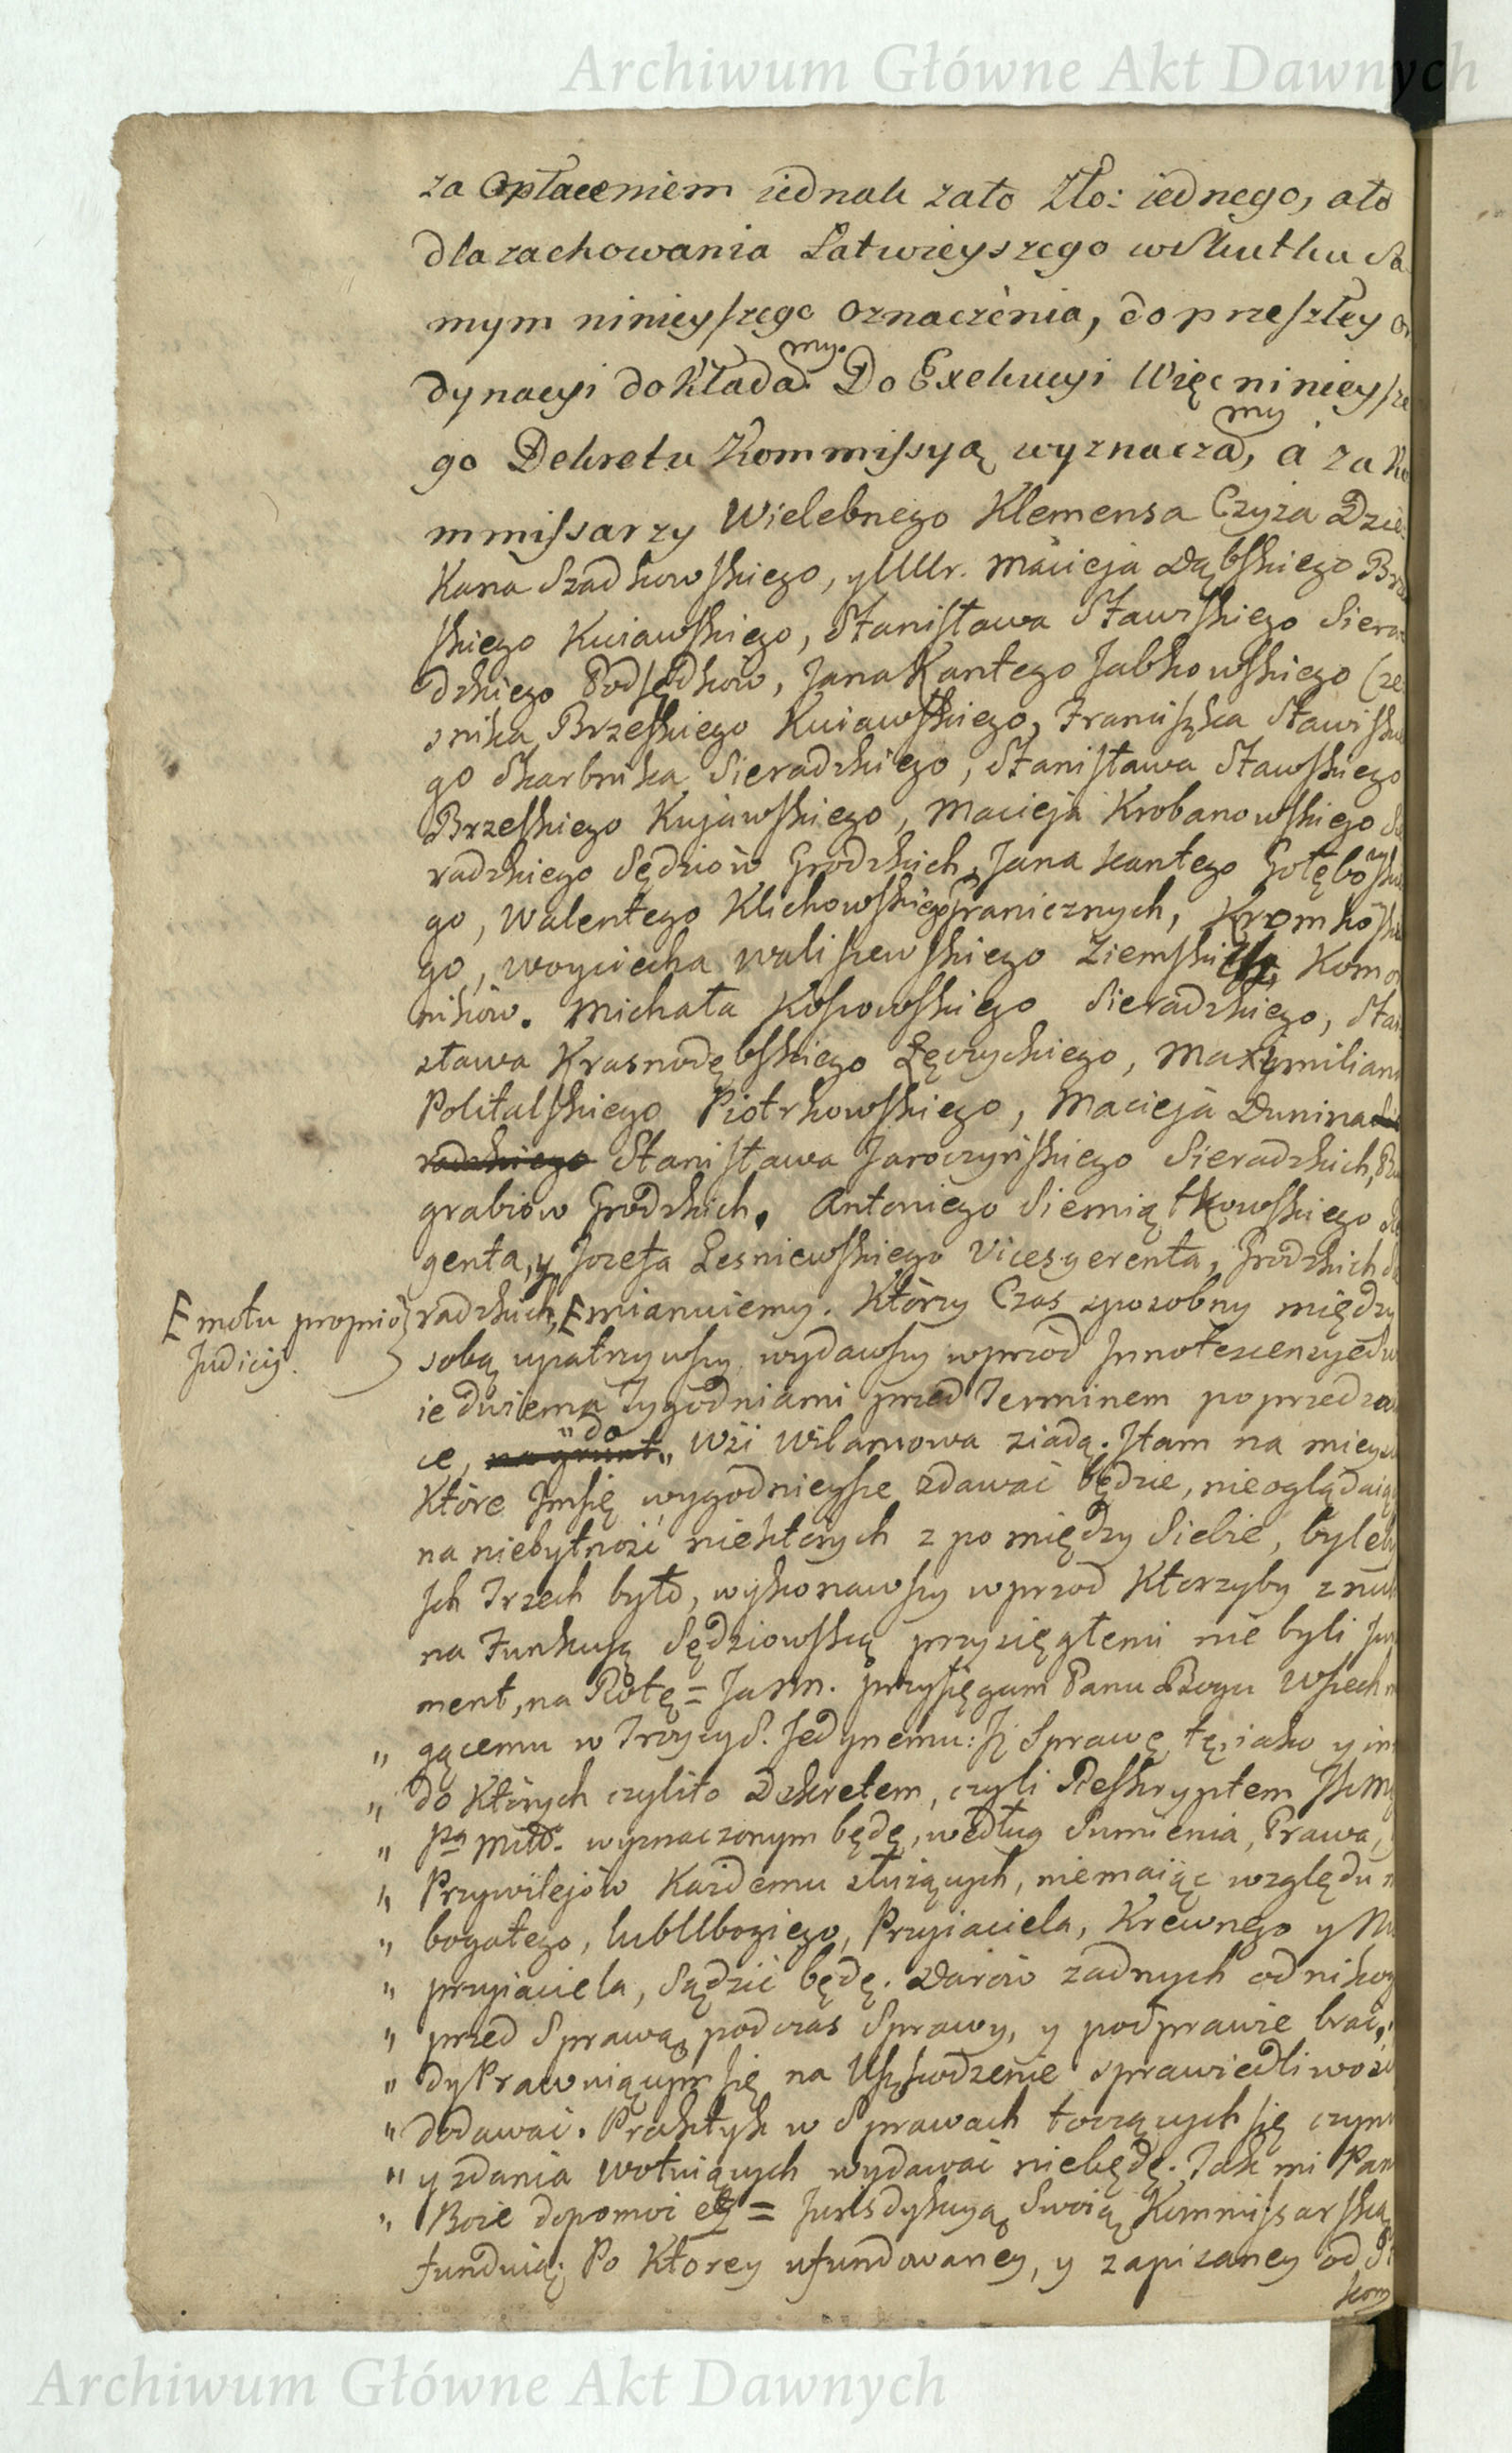 Archiwum Główne Akt Dawnych
za opłaceniem iednak zato Zło: iednego, ato
dla zachowania Łatwieyszego w Skutku Sa
mym ninieyszego oznaczenia, do przeszłey or
dynacyi dokładamy. Do Exekucyi Więc ninieysze
go Dekretu Kommissyą wyznaczamy, á za Ko
mmissarzy Wielebnego Klemensa Czyża Dzie
kana Szadkowskiego, y UUr. Macieja Dąbskiego Brze
skiego Kuiawskiego, Stanisława Stawskiego Siera
dzkiego Podsędków, Jana Kantego Jabkowskiego Cze
snika Brzeskiego Kuiawskiego, Franciszka Stawiskie
go Skarbnika Sieradzkiego, Stanisława Stawskiego
Brzeskiego Kujawskiego, Macieja Krobanowskiego Sie
radzkiego Sędziów Grodzkich, Jana Kantego Gołębowskie
go, Walentego Klichowskiego Granicznych, Kromkowskie
go, Woyciecha Waliszewskiego Ziemskich, Komor
ników. Michała Kossowskiego Sieradzkiego, Stani
sława Krasnodębskiego Łęczyckiego, Maxymiliana
Politalskiego Piotrkowskiego, Macieja Dunina Sie
radzkiego Stanisława Jaroczyńskiego Sieradzkich, Bur
grabiow Grodzkich. Antoniego Siemiątkowskiego Re
genta, y Jozefa Lesniewskiego Vicesgerenta, Grodzkich Sie
E motu proprio
Judicij.
radzkich, E mianuiemy. Którzy Czas sposobny między
sobą upatrzywszy wydawszy wprzód Jnnotescencyę dw
ie dwiema Tygodniami przed Terminem poprzedzaią
ce, na grunt „do„ Wsi Wilamowa ziadą. Jtam na mieyscu
Które Jmsię wygodnieysze zdawać będzie, nieoglądaiąc
na niebytność niektórych z pomiędzy Siebie, byleby
Jch Trzech było, wykonawszy wprzod Ktorzyby z nich
na Funkcyą Sędziowską przysięgłemi nie byli Jura
ment, na Rotę = Ja NN. przysięgam Panu Bogu Wszechmo
„ gącemu w Troycy S. Jedynemu: Jż Sprawę tę, iako y inne
„ do Których czylito Dekretem, czyli Reskryptem JKMci
„ Pa Miło. wyznaczonym będę, według Sumienia, Prawa,
„ Przywilejów Każdemu służących, niemaiąc względu na
„ bogatego, lub Ubogiego, Przyiaciela, Krewnego y Nie
„ przyiaciela, Sądzić będę. Darów zadnych od nikogo
„ przed Sprawą, podczas Sprawy, y po Sprawie brać,
„ dy Prawuiącym się na Uszkodzenie sprawiedliwości
„ dodawać. Praktyk w Sprawach toczących się czynić
„ y zdania wotuiących wydawać niebędę. Tak mi Panie
„ Boże dopomoż etz = Jurisdykcyą Swoią Kommissarską
funduią; Po Ktorey ufundowaney, y zapisaney od St
kom
Archiwum Główne Akt Dawnych